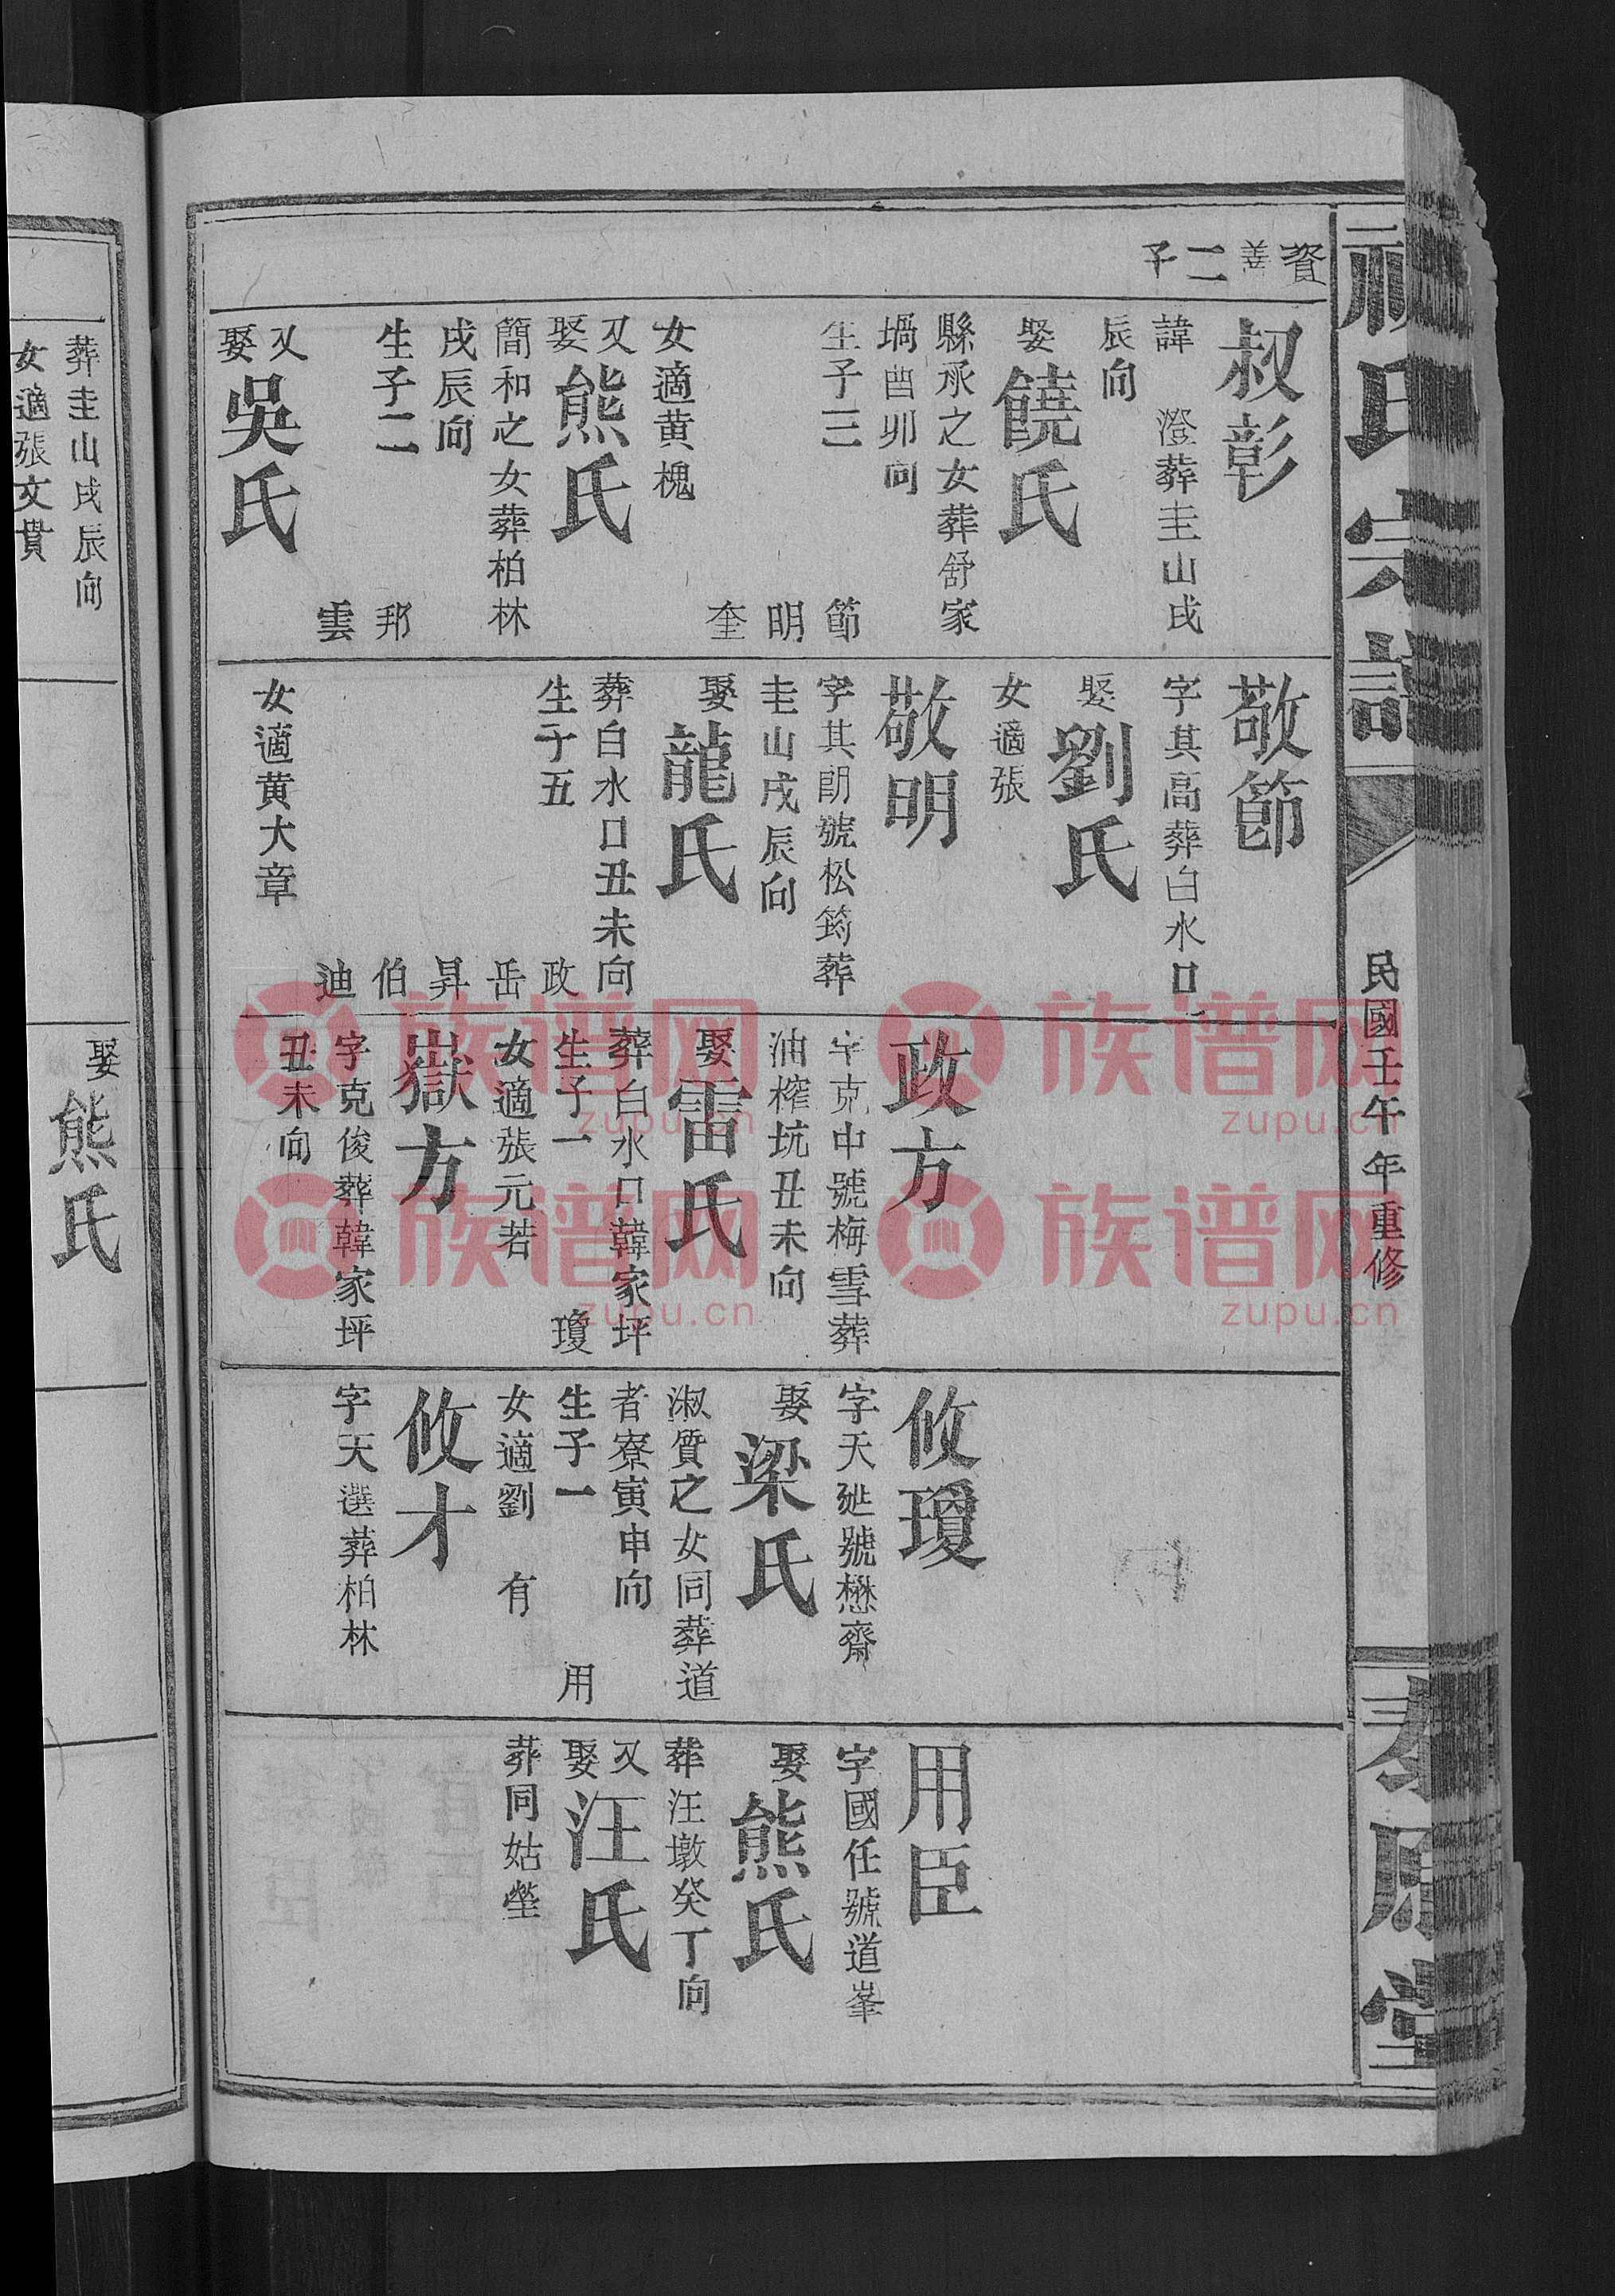 祝氏宗譜
民國壬午年重修
泰原堂
資善二子
叔彰
諱　澄葬圭山戌
辰向
娶饒氏
縣承之女葬舒家
堝酉卯向
生子三　節
明
奎
女適黄槐
又娶熊氏
簡和之女葬柏林
戌辰向
生子二　邦
雲
又娶吳氏
敬節
字其高葬白水口
娶劉氏
女適張
敬明
字其朗號松筠葬
圭山戌辰向
娶龍氏
葬白水口丑未向
生子五　政
岳
昇
伯
迪
女適黄大章
政方
字克中號梅雪葬
油榨坑丑未向
娶雷氏
葬白水口韓家坪
生子一　瓊
女適張元若
嶽方
字克俊葬韓家坪
丑未向
攸瓊
字天𨒪號懋齋
娶梁氏
淑質之女同葬道
者寮寅申向
生子一　用
女適劉　有
攸才
字天選葬柏林
用臣
字國任號道峯
娶熊氏
葬汪墩癸丁向
又娶汪氏
葬同姑塋
葬圭山戌辰向
女適張文貫
娶熊氏
族谱网
zupu.cn
族谱网
zupu.cn
族谱网
zupu.cn
族谱网
zupu.cn